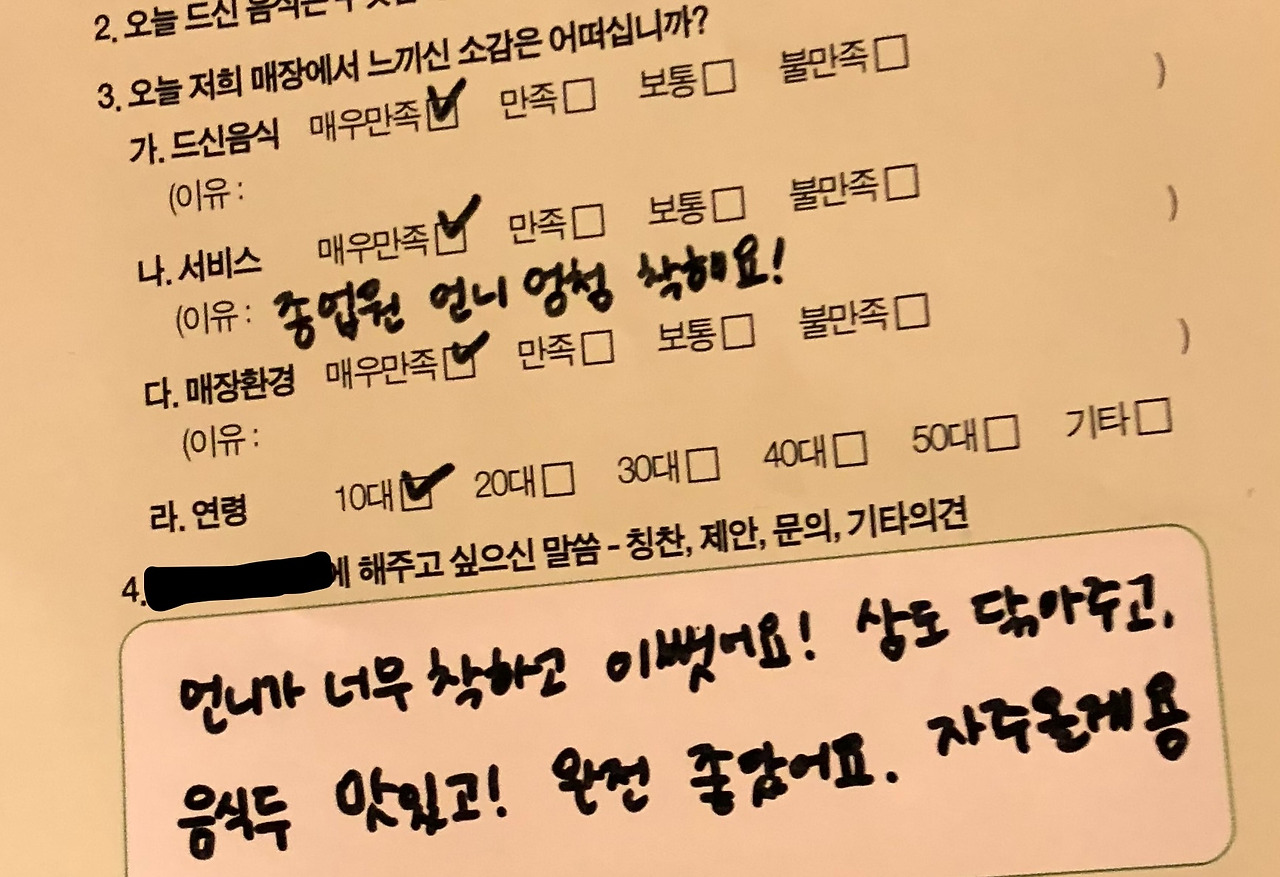 2. 오늘 드신 음식은
3. 오늘 저희 매장에서 느끼신 소감은 어떠십니까?
가. 드신음식 매우만족 만족 보통 불만족
(이유 : )
나. 서비스 매우만족 만족 보통 불만족
(이유 : 종업원 언니 엉청 착해요! )
다. 매장환경 매우만족 만족 보통 불만족
(이유 : )
라. 연령 10대 20대 30대 40대 50대 기타
4. 에 해주고 싶으신 말씀 - 칭찬, 제안, 문의, 기타의견
언니가 너무 착하고 이뻤어요! 상도 닦아주고,
음식두 맛있고! 완전 좋았어요. 자주올게용